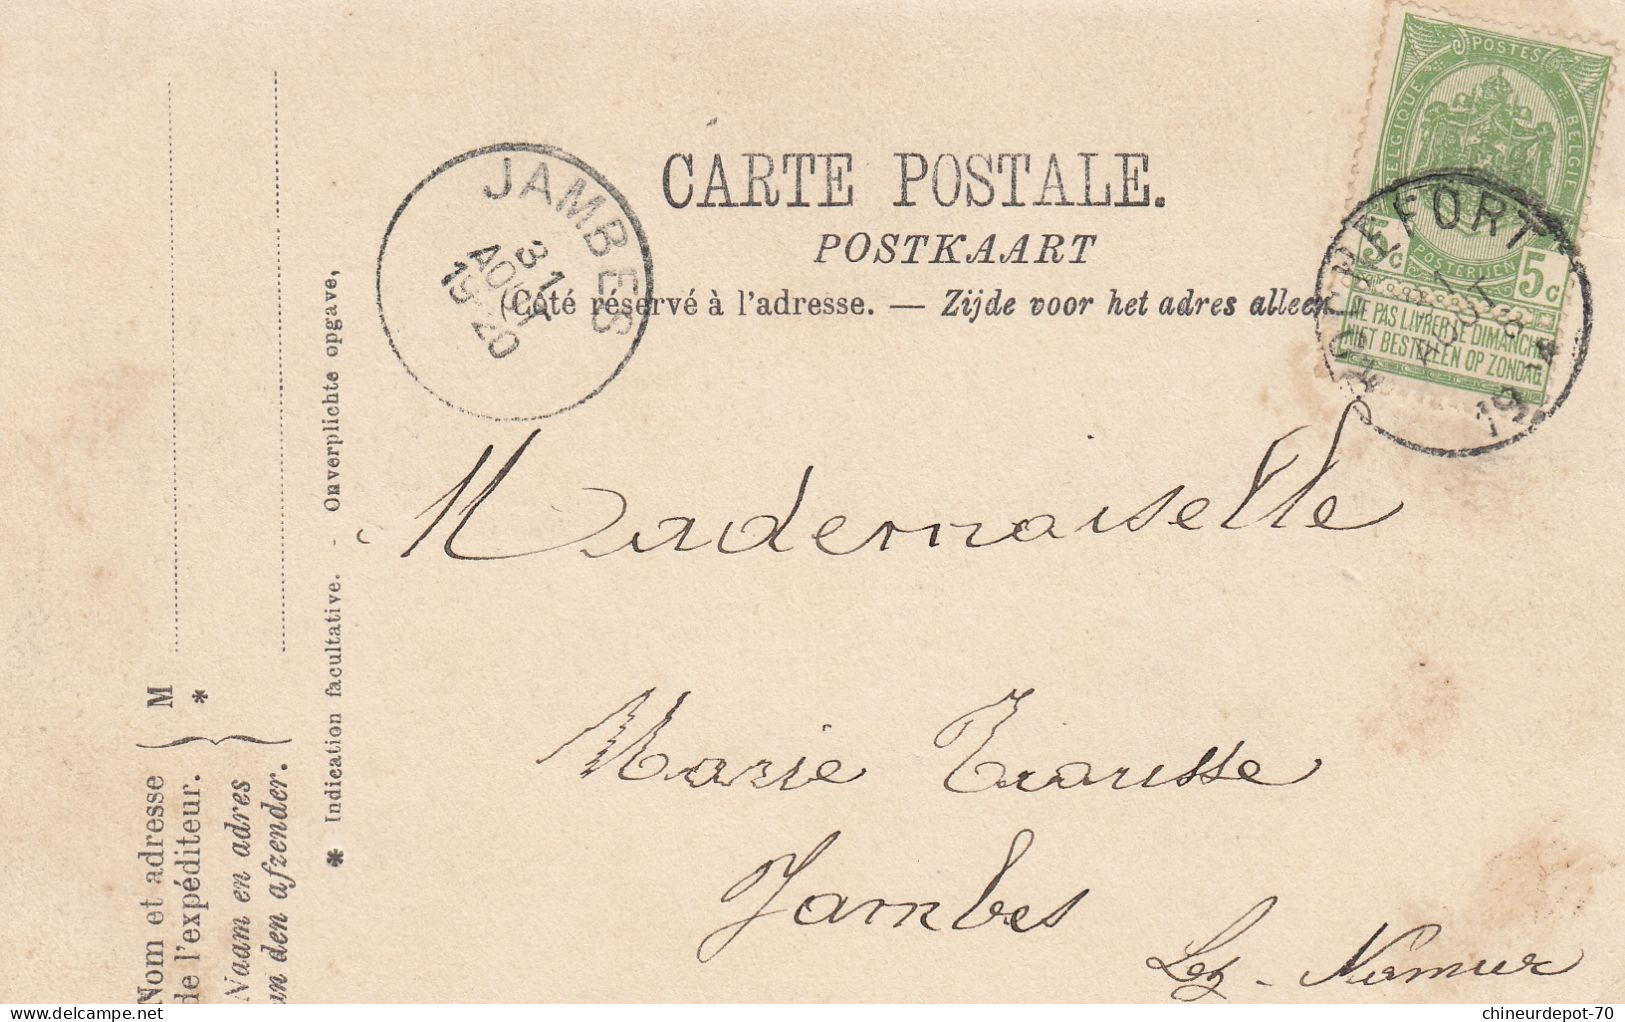 CARTE POSTALE.
POSTKAART
(Côté réservé à l'adresse. — Zijde voor het adres alleen
JAMBES
31
AOUT
19-20
POSTES
BELGIQUE
BELGIË
POSTERIJEN
5c 5c
NE PAS LIVRER LE DIMANCHE
NIET BESTELLEN OP ZONDAG.
ROCHEFORT
AOUT
Mademoiselle
Marie
Jambes
Lez-Namur
Nom et adresse
de l'expéditeur.
Naam en adres
an den afzender.
M
*
* Indication facultative. - Onverplichte opgave,
chineurdepot-70